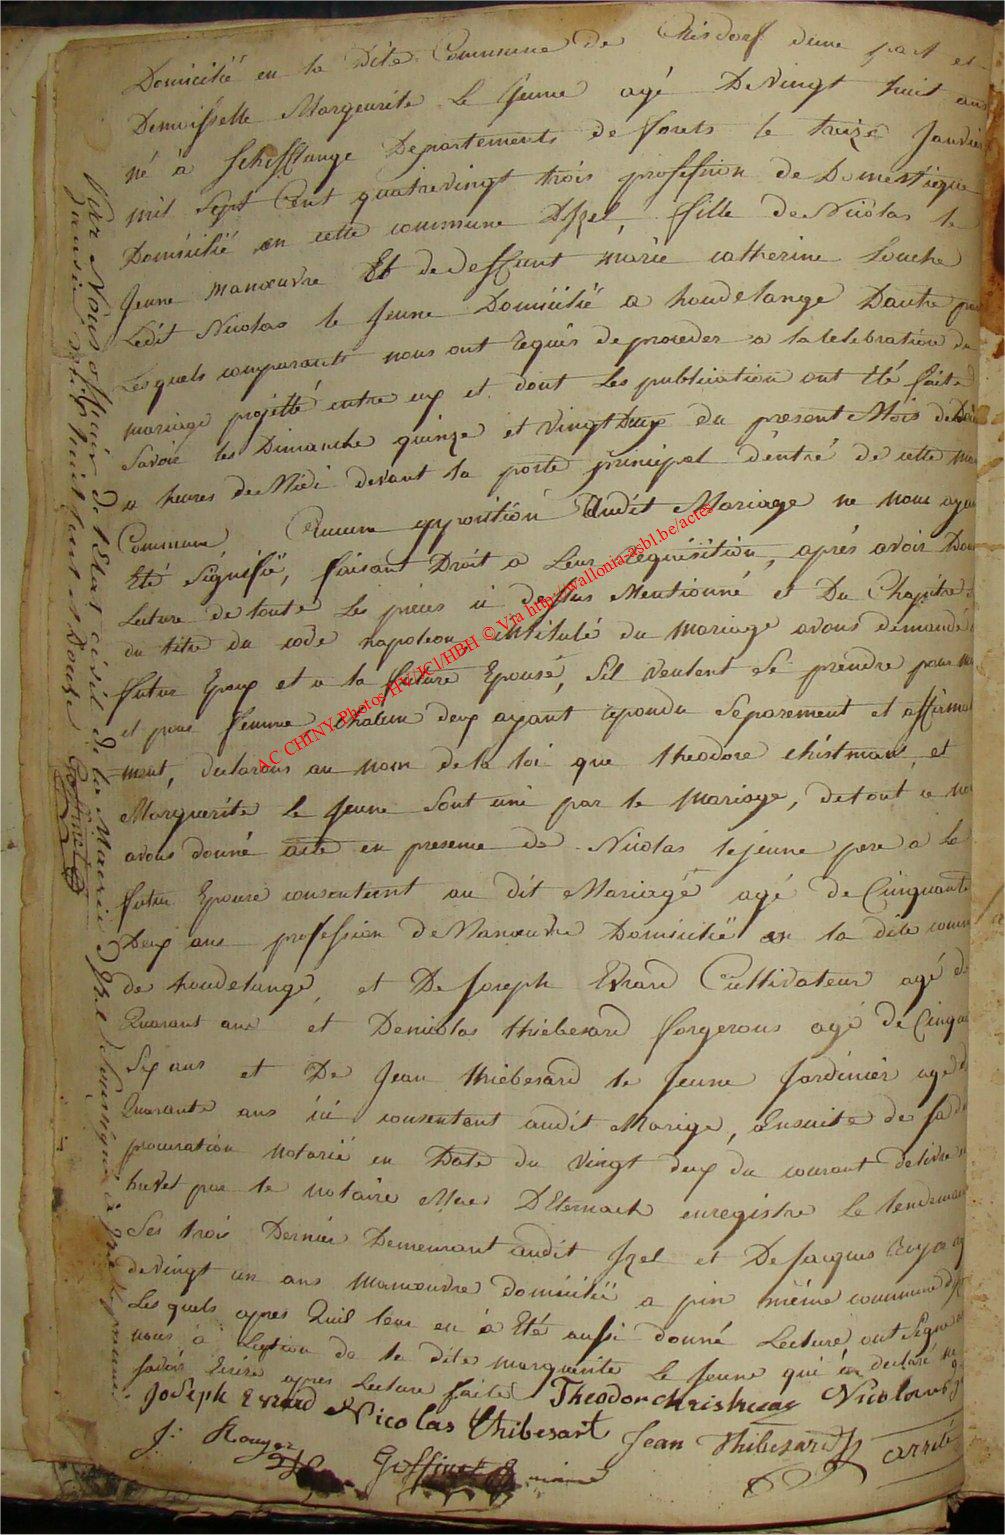 Domicilié en la Dite Commune de Chisdorf dune part et
Demoisselle Margeurite Le Jeune agé De vingt huit ans
né à Schifflange Departements de forets le treize Janvier
mil Sept Cent quatrevingt trois profession de Domestique
Domicilié en cette commune D'Izel, fille de Nicolas le
Jeune manœuvre Et de deffunt marie catherine Louche
Ledit Nicolas le Jeune Domicilié a houdelange Dautre part
Lesquels comparants nous ont requis de proceder a la celebration du
mariage projetté entre eux et dont les publication ont été faites
Savoir les Dimanche quinze et vingt Deux du present Mois de
a heures de Midi devant la porte principal d'entré de cette
Commune Aucune opposition Audit Mariage ne nous ayant
Eté Signifié, faisant Droit a Leur requisition, aprés avoir Donné
Lecture de toute Les pieces ci dessus Mentionné et Du Chapitre
du titre du code napoleon, intitulé du mariage avons demandé
futur Epoux et a la future Epouse, Sil veulent Se prendre pour
et pour femme, chacun deux ayant repondu Separement et affirma
ment, declarons au nom de la loi que theodore christman et
Marguerite le Jeune Sont uni par le mariage, de tout ce
avons donné acte en presence de Nicolas lejeune pere a la
futur Epouse consentent au dit Mariage agé de Cinquante
Deux ans profession de Manœuvre Domicilié en la dite comm
de houdelange, et De Joseph Evrard Cultivateur agé de
Quarant ans et De nicolas thiebesard forgerons agé de Cinqua
Six ans et De Jean thiebesard le Jeune Jardinier age de
Quarante ans ici consentant audit Mariage, Ensuite de Sa
procuration notarié en Date du vingt deux du courant delivre
brevet par le notaire D'Eternach enregistre le lendemain
Ses trois Dernier Demeurant audit Izel et De Jacques
de vingt un ans manœuvre domicilié a pin même commune
Lesquels apres Quil leur en à Eté aussi donné Lecture ont Signé
nous à Lexption de la dite marguerite Le Jeune qui à declaré ne
savoir Ecrire apres Lecture faite
Joseph Evrard Theodor christman Nicolaus
Nicolas thibesart Jean thibesard
J: Rouyer Goffinet maire arrêté
par Nous officier de l'Etat civil de la Mairie d'Izel Soussigné à Izel le premier
Janvier mil huit cent et Douze Goffinet
AC CHINY Photos HV/JCl/HBH © Via http://wallonia-asbl.be/actes